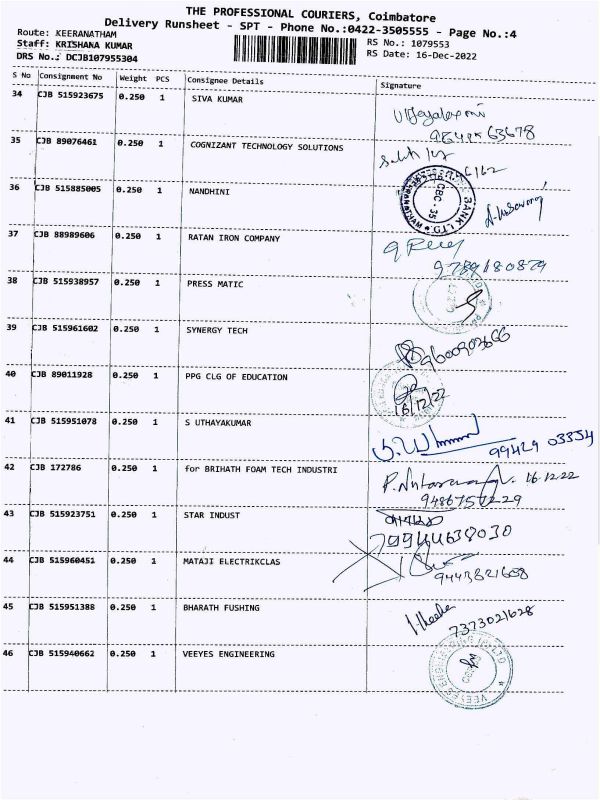 THE PROFESSIONAL COURIERS, Coimbatore
Delivery Runsheet - SPT - Phone No.:0422-3505555 - Page No.:4
Route: KEERANATHAM
RS No.: 1079553
Staff: KRISHANA KUMAR
RS Date: 16-Dec-2022
DRS No.: DCJB107955304
S No Consignment No Weight PCS Consignee Details Signature
34 CJB 515923675 0.250 1 SIVA KUMAR
35 CJB 89076461 0.250 1 COGNIZANT TECHNOLOGY SOLUTIONS
36 CJB 515885005 0.250 1 NANDHINI
BANK LTD
CBC - 35
37 CJB 88989606 0.250 1 RATAN IRON COMPANY
9789180879
38 CJB 515938957 0.250 1 PRESS MATIC
39 CJB 515961602 0.250 1 SYNERGY TECH
9600902666
40 CJB 89011928 0.250 1 PPG CLG OF EDUCATION
16/12/22
41 CJB 515951078 0.250 1 S UTHAYAKUMAR
99429 03354
42 CJB 172786 0.250 1 for BRIHATH FOAM TECH INDUSTRI
16.12.22
43 CJB 515923751 0.250 1 STAR INDUST
9944638030
44 CJB 515960451 0.250 1 MATAJI ELECTRIKCLAS
9443821608
45 CJB 515951388 0.250 1 BHARATH FUSHING
7373021628
46 CJB 515940662 0.250 1 VEEYES ENGINEERING